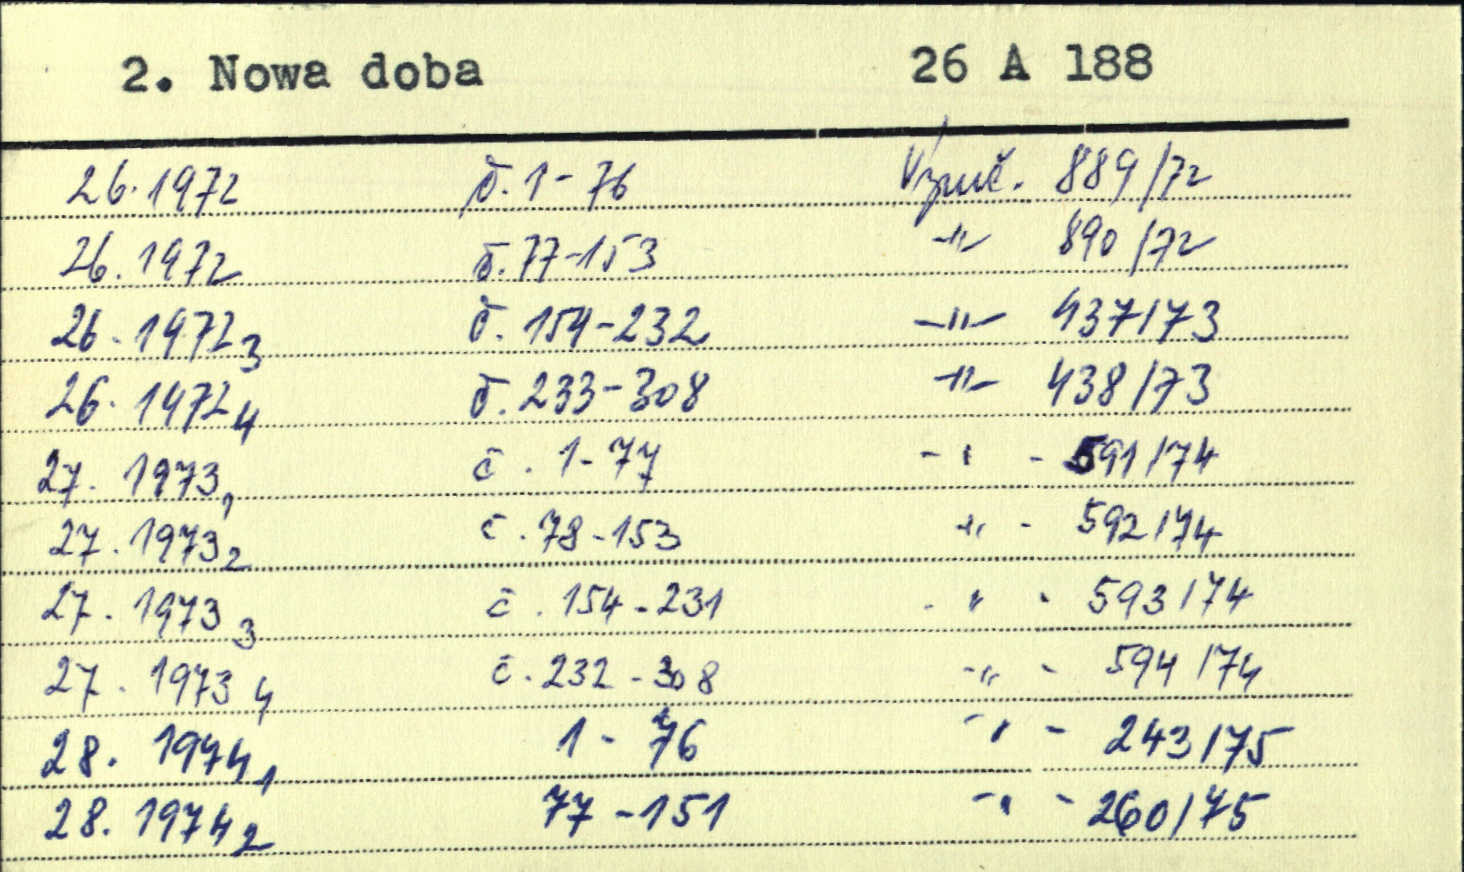 2. Nowa doba 26 A 188
26. 1972 č. 1-76 Vzmuč. 889/72
26. 1972 č. 77-153 -"- 890/72
26. 1972 3 č. 154-232 -"- 437/73
26. 1972 4 č. 233-308 -"- 438/73
27. 1973 1 č. 1-77 -"- 591/74
27. 1973 2 č. 78-153 -"- 592/74
27. 1973 3 č. 154-231 -"- 593/74
27. 1973 4 č. 232-308 -"- 594/74
28. 1974 1 1-76 -"- 243/75
28. 1974 2 77-151 -"- 260/75